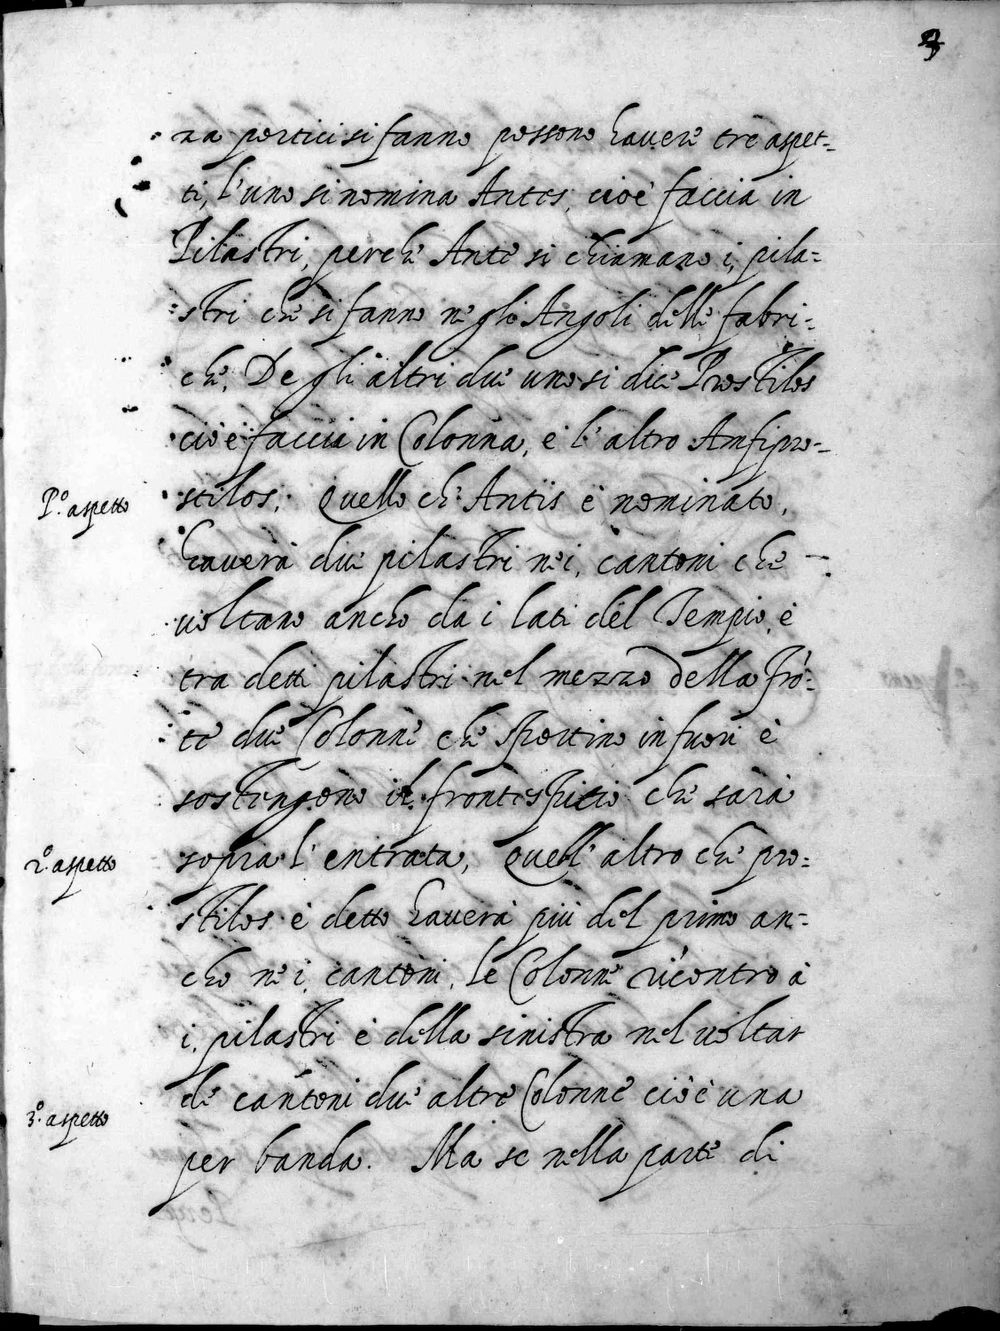 za portici si fanno possono hauere tre aspet=
ti, l'uno si nomina Antes, cioè faccia in
Pilastri, perche Ante si chiamano i, pila=
stri che si fanno ne gli Angoli delle fabri=
che, De gli altri due uno si dice Prostilos
cioè faccia in Colonna, e l'altro Amfipro=
P.º aspetto
stilos; Quello ch'Antis è nominato,
hauerà due pilastri nei, cantoni che
uoltano ancho da i lati del Tempio, è
tra detti pilastri nel mezzo della fró=
te due Colonne che sportino in fuori è
sostengono il frontespitio che sarà
2º aspetto
sopra l'entrata, Quell'altro che pro=
stilos è detto hauerà più del primo an=
cho ne i, cantoni, le Colonne ricontro à
i, pilastri è della sinistra nel uoltar
3º aspetto
de cantoni due altre Colonne cioè una
per banda. Ma se nella parte di